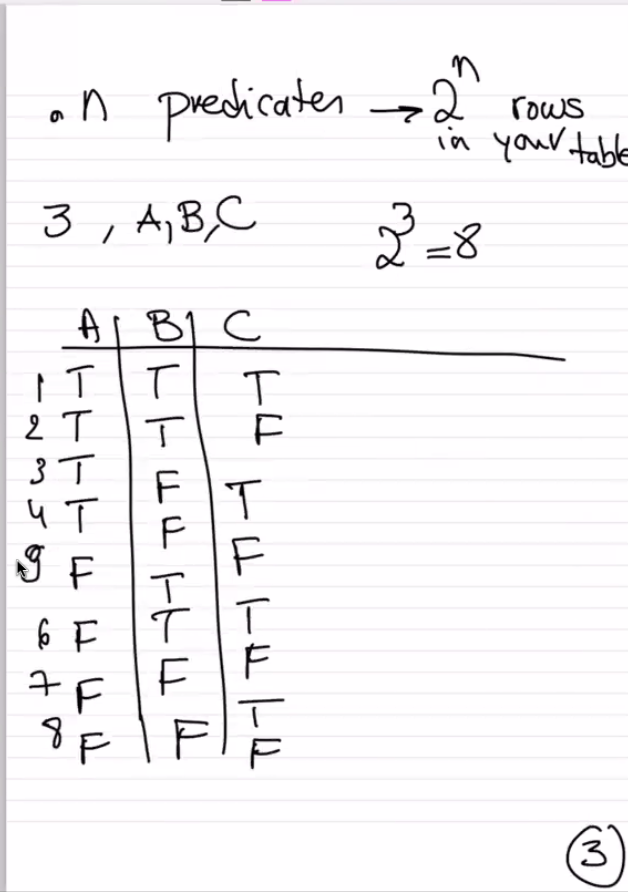 n predicates → 2^n rows
in your table
3 , A, B, C 2^3 = 8
A B C
1 T T T
2 T T F
3 T F T
4 T F F
F T T
6 F T F
7 F F T
8 F F F
3